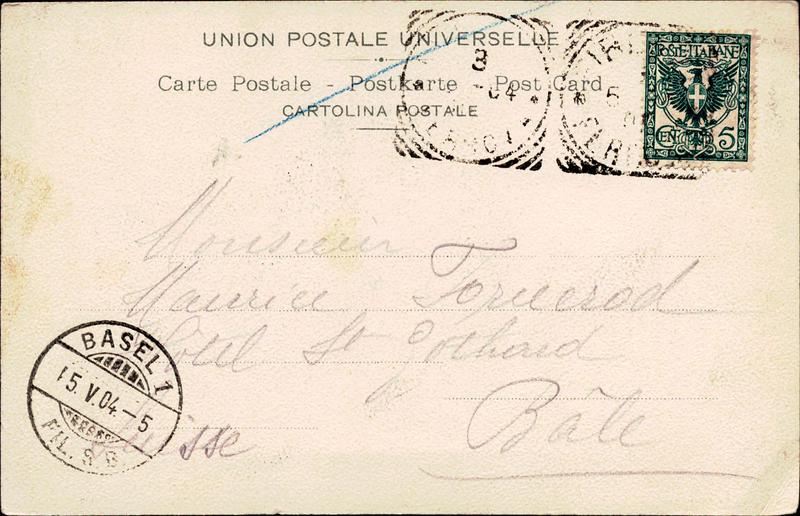 UNION POSTALE UNIVERSELLE
Carte Postale - Postkarte - Post Card
CARTOLINA POSTALE
8
-04
POSTE ITALIANE
5
CENT
5
Monsieur
Maurice Fornerod
Hôtel St Gothard
Bâle
Suisse
BASEL 1
15.V.04-5
FIL. S B